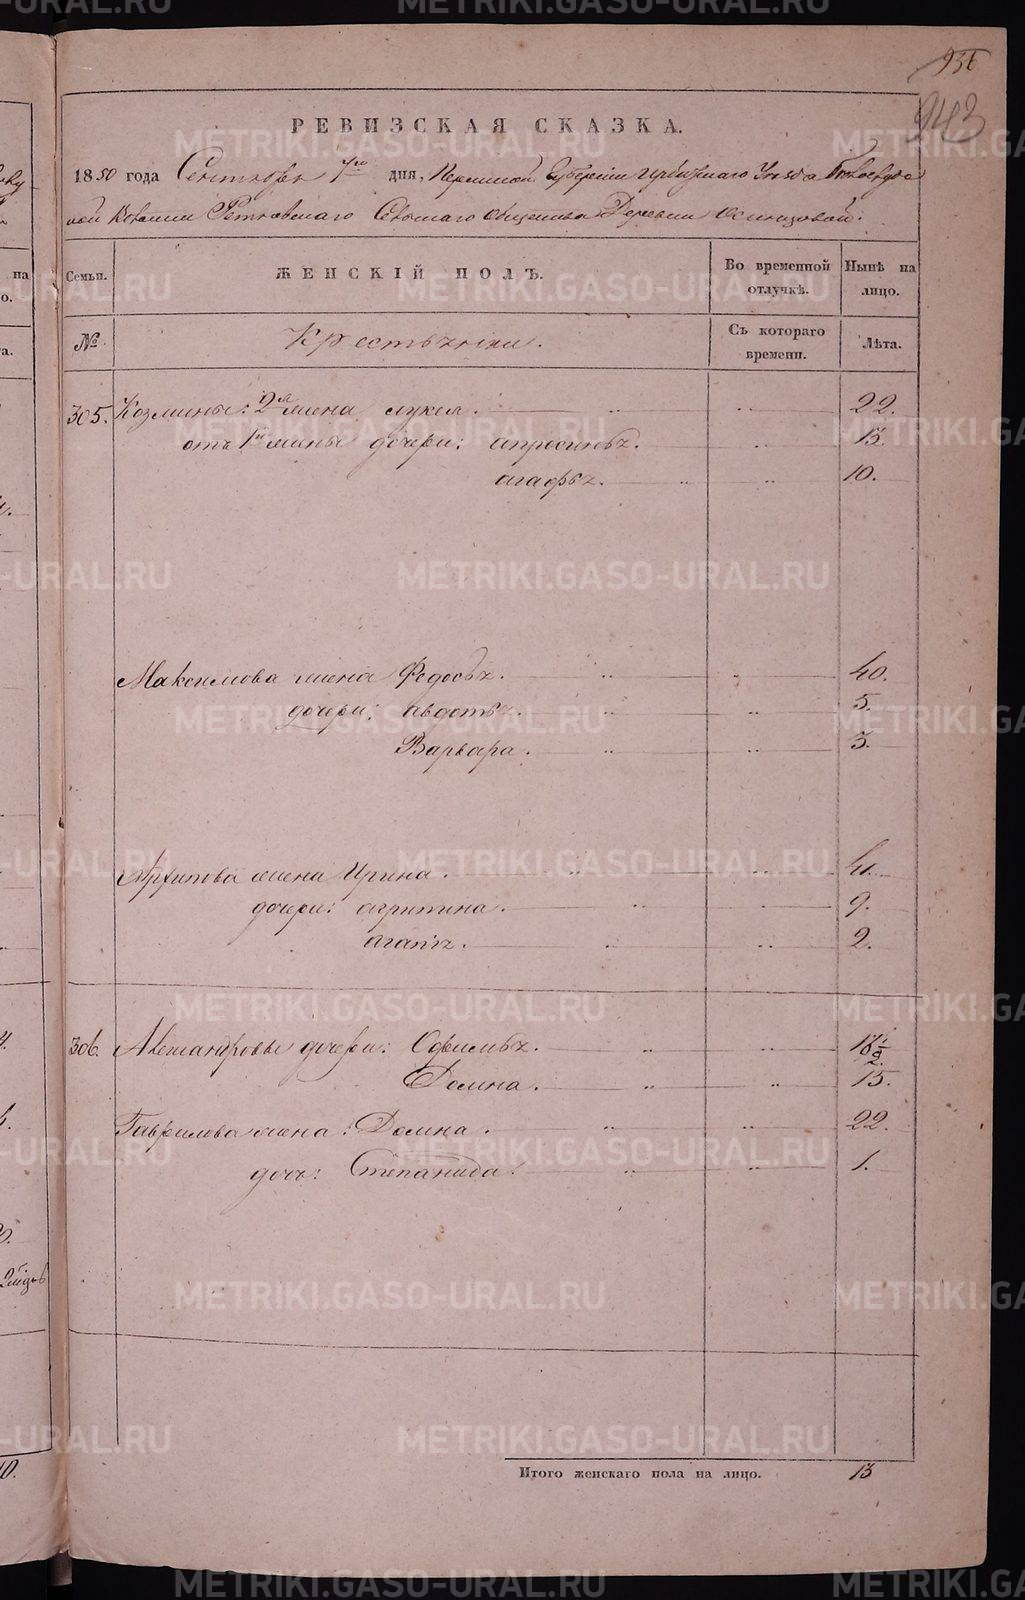 936
943
РЕВИЗСКАЯ СКАЗКА.
1850 года Сентября 7го дня, Пермской Губернии Ирбитскаго Уезда
ской Волости Ретневскаго Сельскаго общества Деревни
Семьи.
ЖЕНСКІЙ ПОЛЪ.
Во временной отлучкѣ.
Нынѣ на лицо.
№
Крестьяне.
Съ котораго времени.
Лѣта.
305. Козмины: 2я жена Лукея. 22.
отъ 1й жены дочери: апросинья. 13.
агафья. 10.
Максимова жена Федосья. 40.
дочери: авдотья. 5.
Варвара. 3.
Архипова жена Ирина. 41.
дочери: агрипина. 9.
агапья. 2.
306. Александровы дочери: Офимья. 18½
Домна. 15.
Гаврилова жена: Домна. 22.
дочь: Степанида. 1.
Итого женскаго пола на лицо. 13
METRIKI.GASO-URAL.RU